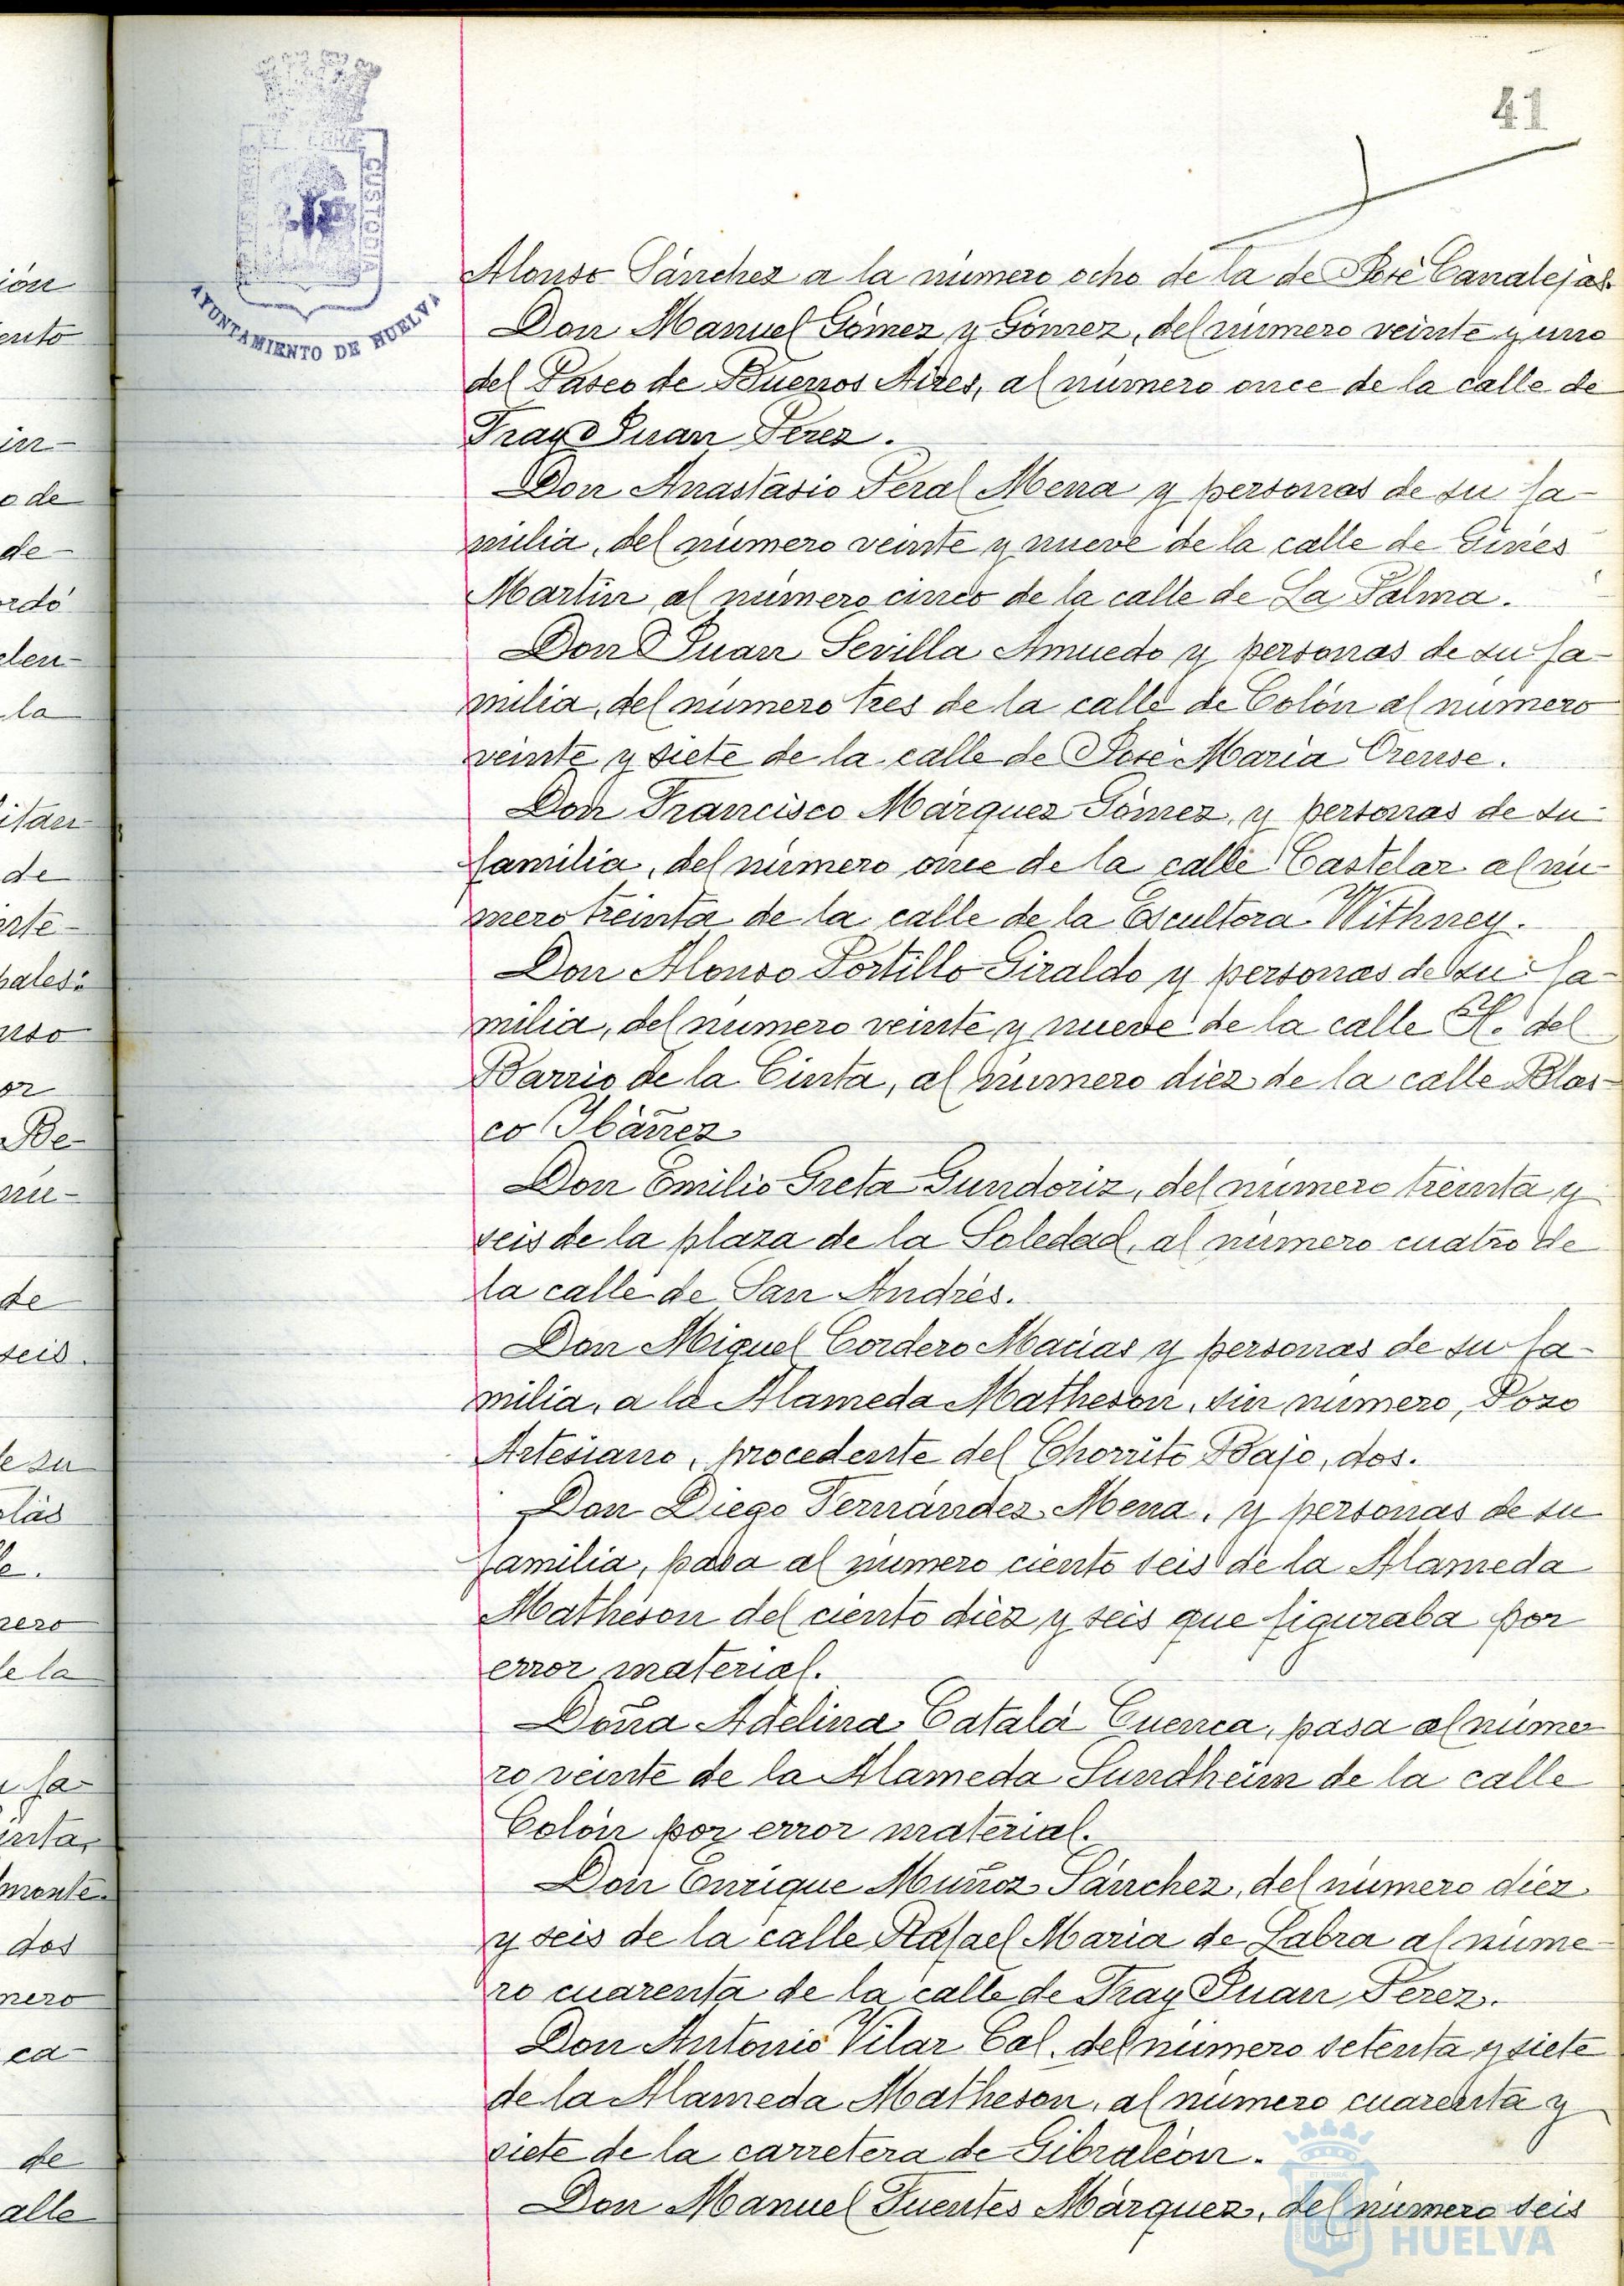 41
AYUNTAMIENTO DE HUELVA
Alonso Sánchez a la número ocho de la de José Canalejas.
Don Manuel Gómez y Gómez, del número veinte y uno
del Paseo de Buenos Aires, al número once de la calle de
Fray Juan Pérez.
Don Anastasio Peral Mena y personas de su fa-
milia, del número veinte y nueve de la calle de Ginés
Martín al número cinco de la calle de La Palma.
Don Juan Sevilla Amuedo y personas de su fa-
milia, del número tres de la calle de Colón al número
veinte y siete de la calle de José María Orense.
Don Francisco Márquez Gómez, y personas de su
familia, del número once de la calle Castelar al nú-
mero treinta de la calle de la Escultora Withney.
Don Alonso Portillo Giraldo y personas de su fa-
milia, del número veinte y nueve de la calle H. del
Barrio de la Cinta, al número diez de la calle Blas-
co Ibáñez
Don Emilio Greta Gundoriz, del número treinta y
seis de la plaza de la Soledad, al número cuatro de
la calle de San Andrés.
Don Miguel Cordero Macías y personas de su fa-
milia, a la Alameda Matheson, sin número, Pozo
Artesiano, procedente del Chorrito Bajo, dos.
Don Diego Fernández Mena, y personas de su
familia, pasa al número ciento seis de la Alameda
Matheson del ciento diez y seis que figuraba por
error material.
Doña Adelina Catalá Cuenca, pasa al núme
ro veinte de la Alameda Sundheim de la calle
Colón por error material.
Don Enrique Muñoz Sánchez, del número diez
y seis de la calle Rafael María de Labra al núme-
ro cuarenta de la calle de Fray Juan Pérez.
Don Antonio Vilar Cal. del número setenta y siete
de la Alameda Matheson, al número cuarenta y
siete de la carretera de Gibraleón.
Don Manuel Fuentes Márquez, del número seis
HUELVA